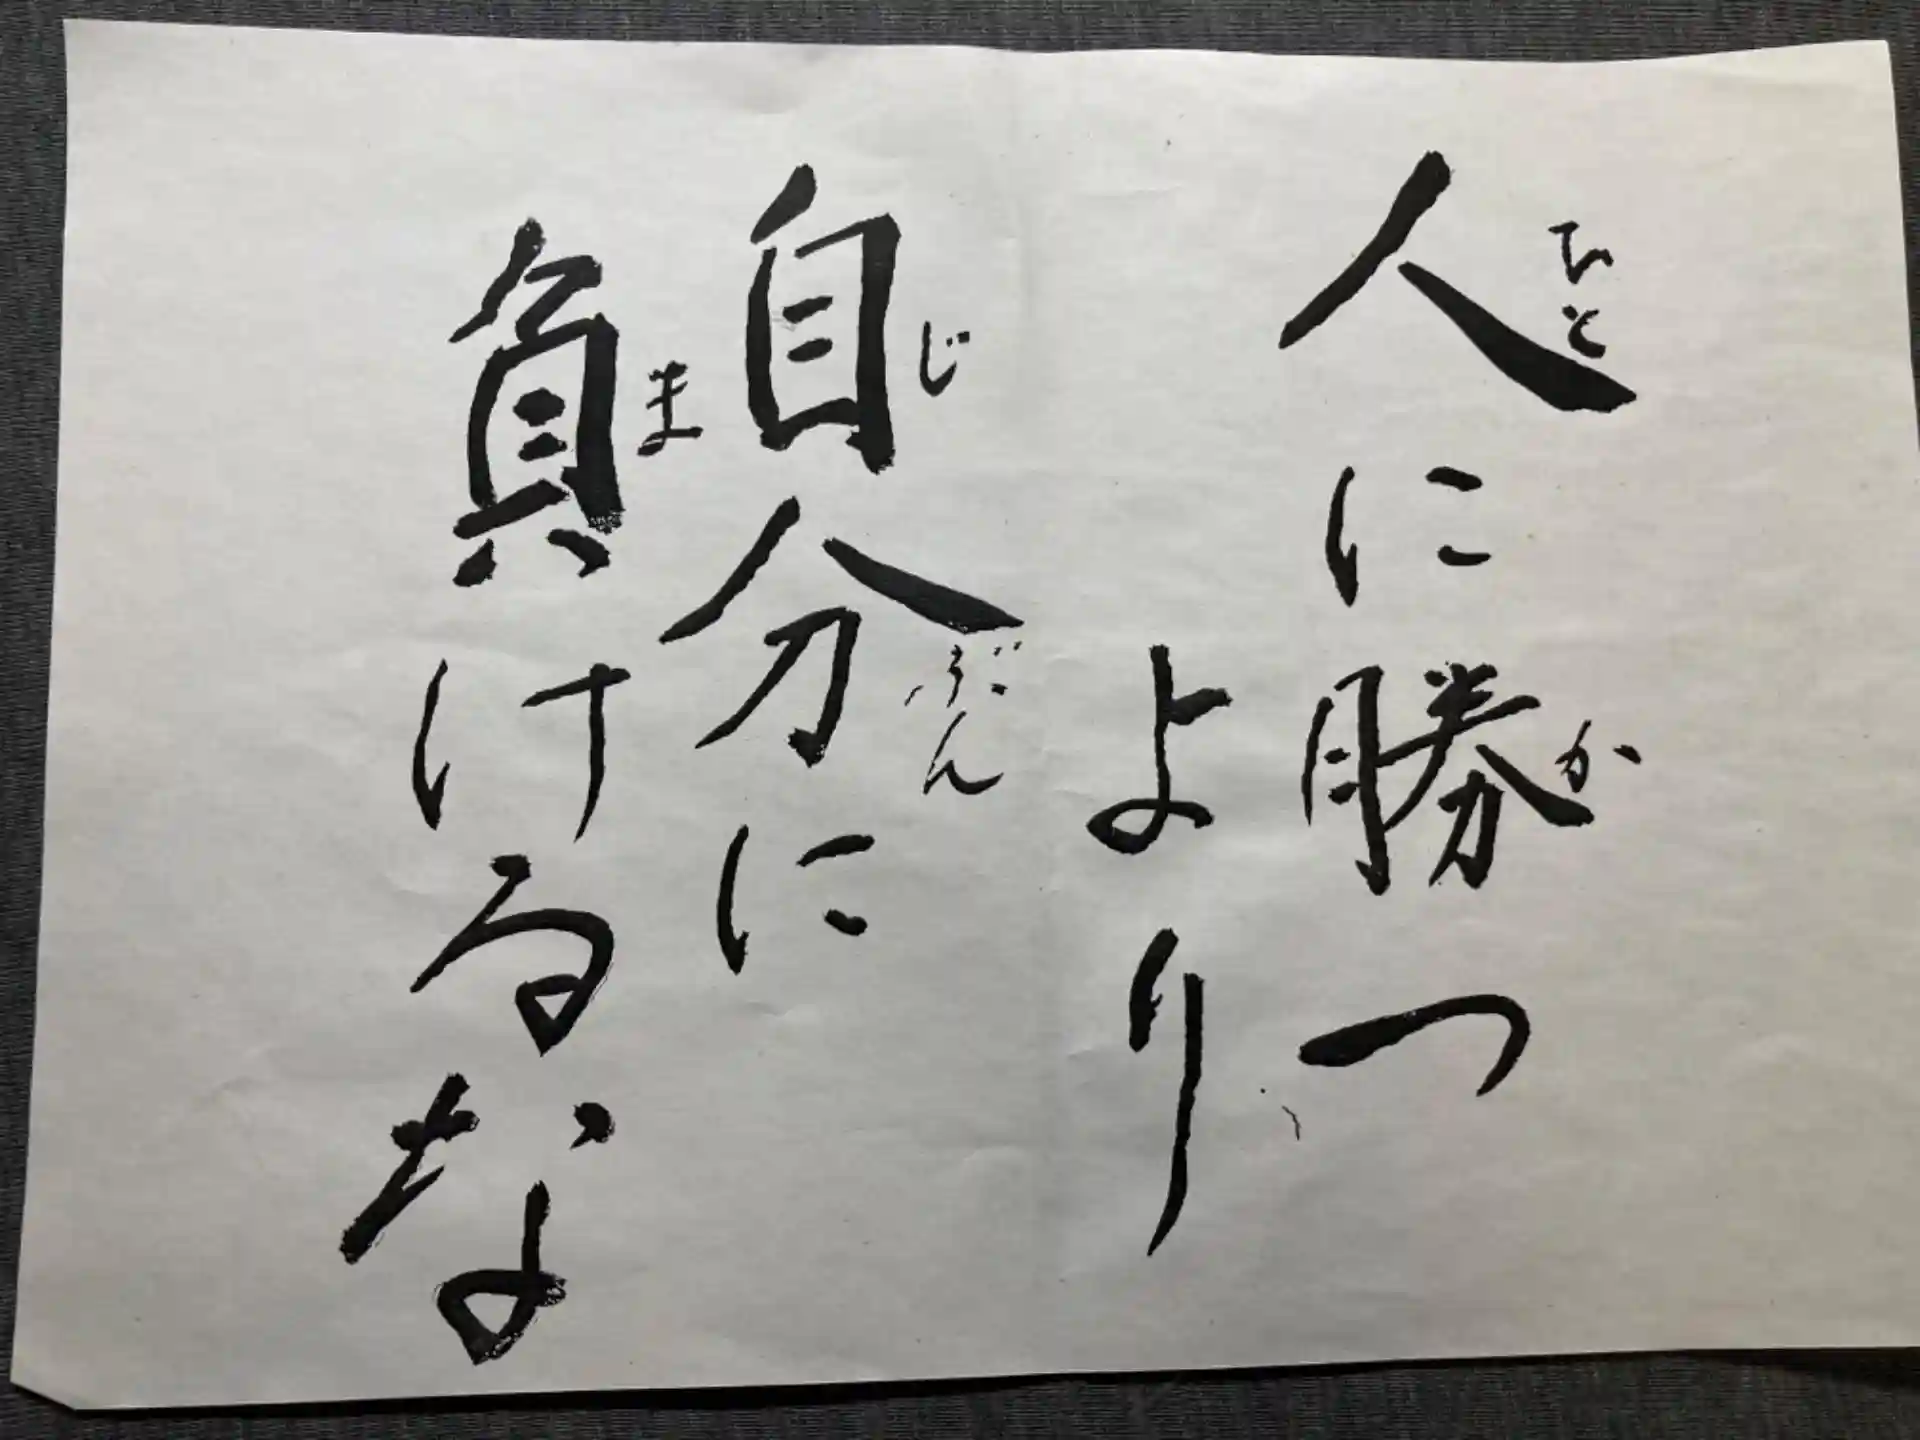 人に勝つ
ひと
か
より
自分に
じ
ぶん
負けるな
ま